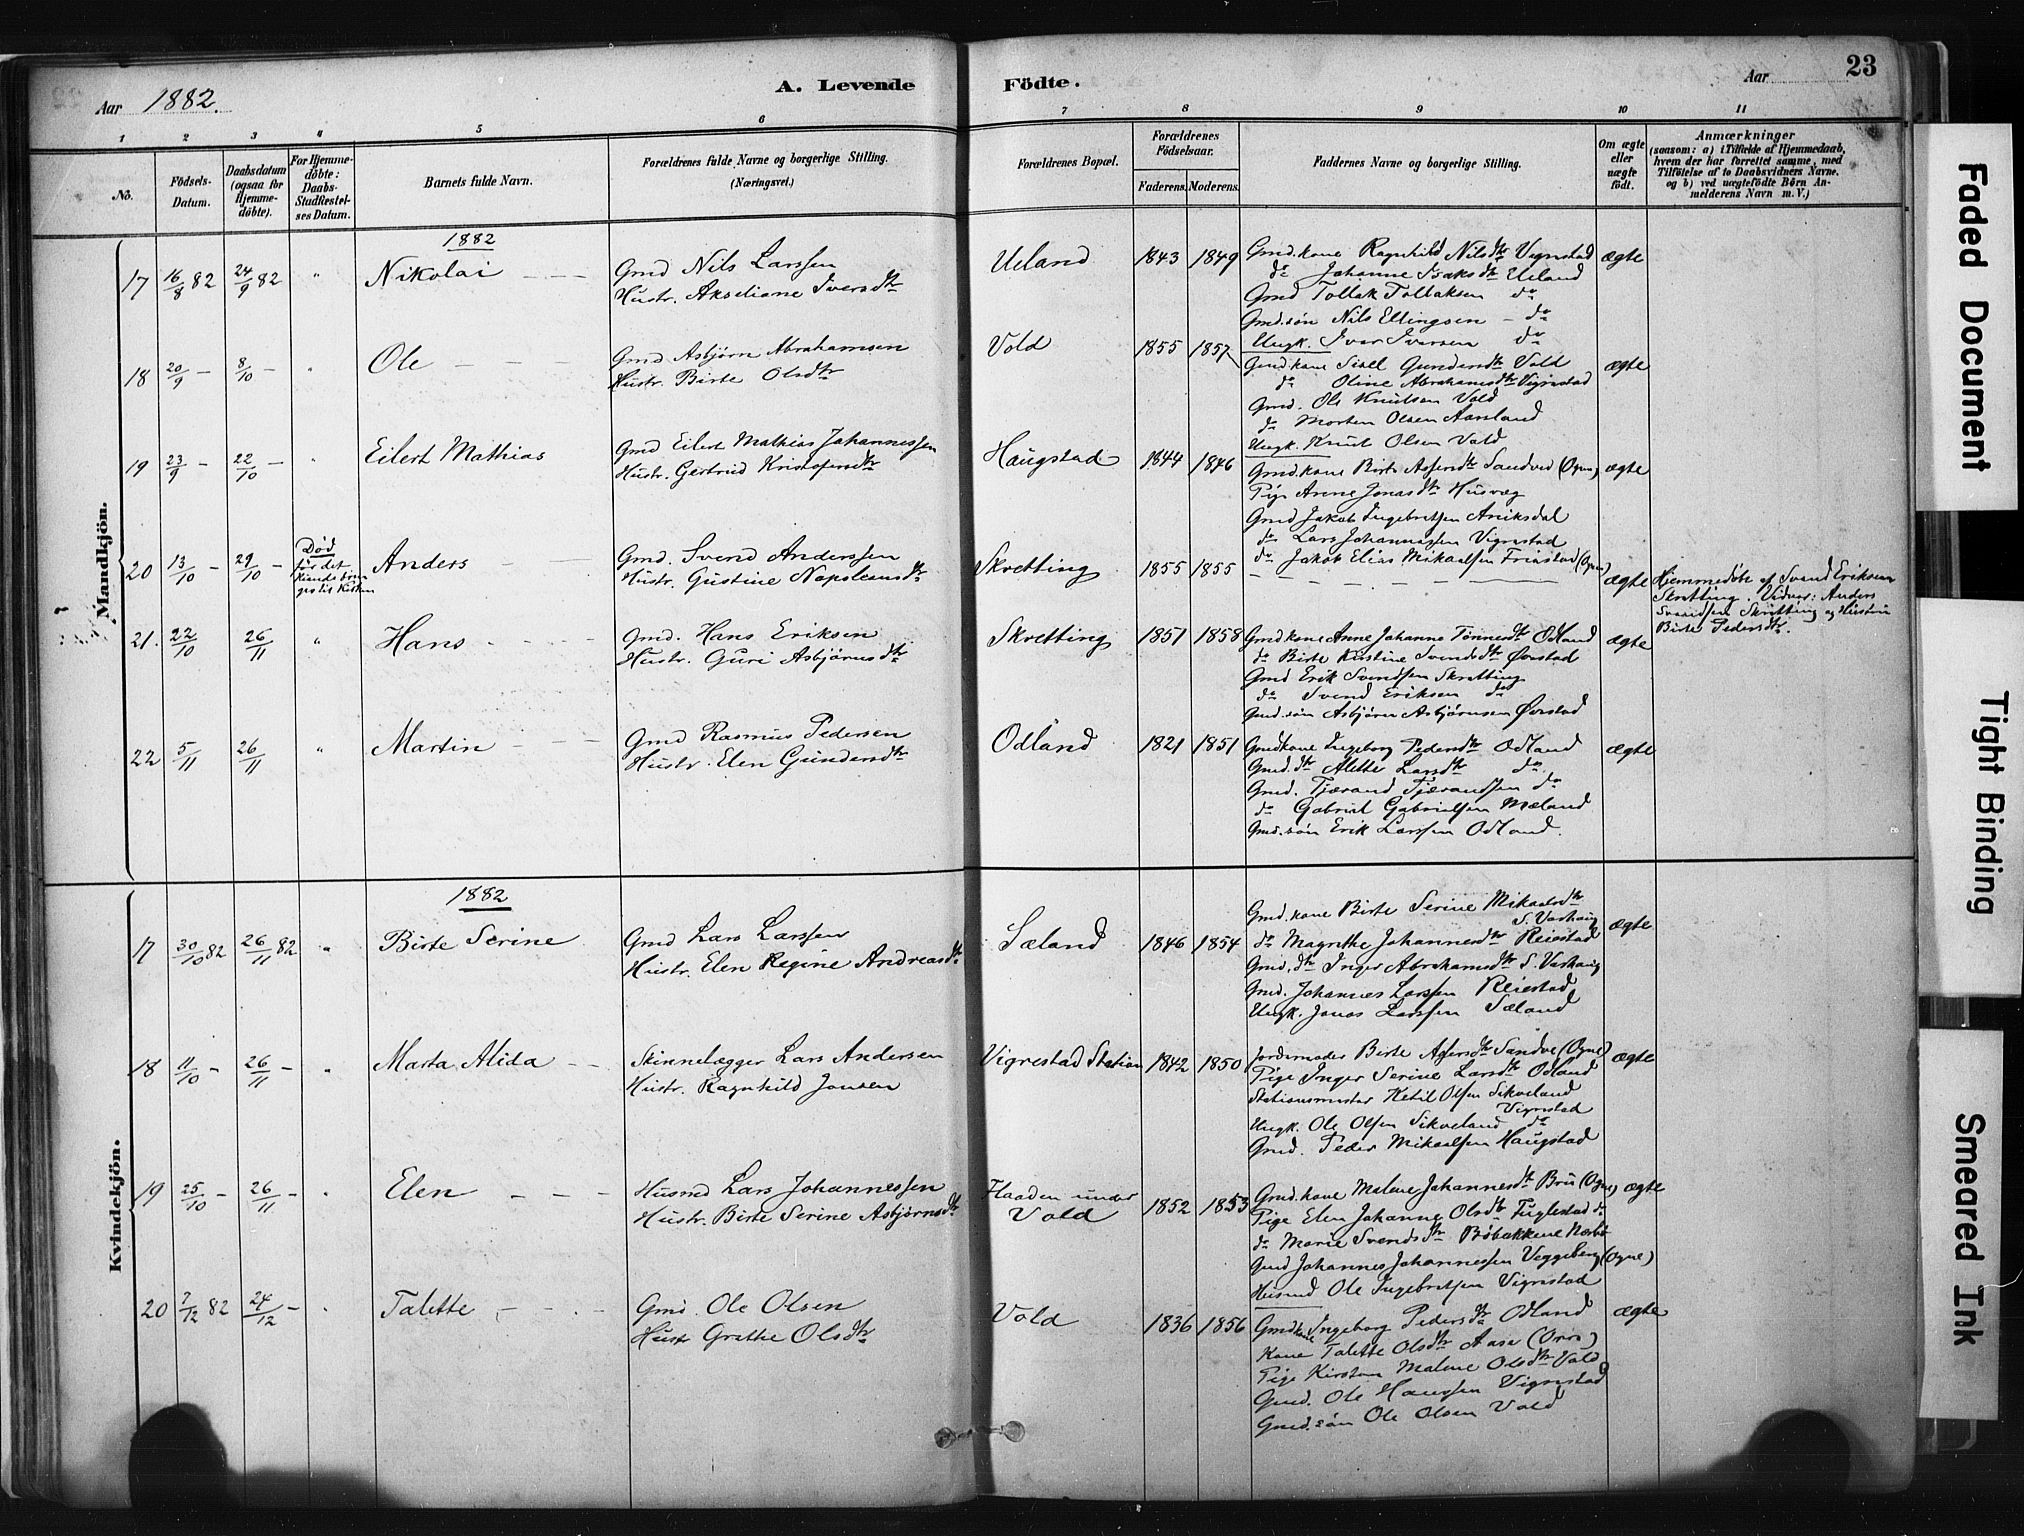 Aar 1882.
A. Levende
Födte.
Aar
23
1
2
3
4
5
6
7
8
9
10
11
No.
Födsels-
Datum.
Daabsdatum
(ogsaa for
Hjemme-
döbte).
For Hjemme-
döbte:
Daabs-
Stadfæstel-
ses Datum.
Barnets fulde Navn.
Forældrenes fulde Navne og borgerlige Stilling.
(Næringsvei.)
Forældrenes Bopæl.
Forældrenes
Födselsaar.
Faderens.
Moderens.
Faddernes Navne og borgerlige Stilling.
Om ægte
eller
uægte
födt.
Anmærkninger
(saasom: a) i Tilfælde af Hjemmedaab,
hvem der har forrettet samme, med
Tilföielse af to Daabsvidners Navne,
og b) ved uægtefödte Börn An-
melderens Navn m.V.)
Mandkjön.
1882
17 16/8 82 24/9 82 " Nikolai
Gmd Nils Larssen
Hustr. Akseliane Iversdtr
Ueland 1843 1849
Gmd.kone Ragnhild Nilsdtr Vigrestad
do Johanne Isaksdtr Ueland
Gmd Tollak Tollaksen do
Gmd.søn Nils Ellingsen do
Ungk. Iver Iversen do
ægte
18 20/9 - 8/10 - " Ole
Gmd Asbjørn Abrahamsen
Hustr. Birte Olsdtr
Vold 1855 1857
Gmd.kone Sisel Gundersdtr Vold
do Oline Abrahamsdtr Vigrestad
Gmd. Ole Knutsen Vold
do Morten Olsen Aarsland
Ungk. Knut Olsen Vold
ægte
19 23/9 - 22/10 - " Eilert Mathias
Gmd Eilert Mathias Johannessen
Hustr. Gertrud Kristofersdtr
Haugstad 1844 1846
Gmd.kone Birte Asersdtr Sandve (Ogne)
Pige Anne Jonasdtr Husvæg
Gmd Jakob Ingebretsen Aniksdal
do Lars Johannessen Vigrestad
do Jakob Elias Mikaelsen Friestad (Ogne)
ægte
20 13/10 - 29/10 -
Død
før det
kunde brin
ges til Kirken
Anders
Gmd. Svend Anderssen
Hustr. Gustine Napoleonsdtr
Skretting 1855 1855
ægte
Hjemmedøbt af Svend Eriksen
Skretting. Vidner: Anders
Svendsen Skretting og Hustru
Birte Pedersdtr.
21. 22/10 26/11 " Hans
Gmd. Hans Eriksen
Hustr. Guri Asbjørnsdtr
Skretting 1851 1858
Gmd kone Anne Johanne Tønnesdtr Odland
do Birte Kirstine Svendsdtr Øvrstad
Gmd Erik Svendsen Skretting
do Svend Eriksen do
Gmd.søn Asbjørn Asbjørnsen Øvrstad
ægte
22 5/11 26/11 " Martin
Gmd Rasmus Pedersen
Hustr. Elen Gundersdtr
Odland 1821 1851
Gmdkone Ingeborg Pedersdtr Odland
Gmd.dtr Alette Larsdtr do
Gmd. Tjærand Tjærandsen do
do Gabriel Gabrielsen Mæland
Gmd.søn Erik Larssen Odland.
ægte
Kvindekjön.
1882
17 30/10 82 26/11 82 " Birte Serine
Gmd Lars Larssen
Hustr. Elen Regine Andreasdtr
Sæland 1846 1854
Gmd.kone Birte Serine Mikaelsdtr
S. Varhaug
do Magrethe Johannesdtr Reiestad
Gmd.dtr Inger Abrahamsdtr S. Varhaug
Gmd. Johannes Larssen Reiestad
Ungk. Jonas Larssen Sæland
ægte
18 11/10 - 26/11 - " Marta Alida
Skinnelægger Lars Andersen
Hustr. Ragnhild Jonsen
Vigrestad Station 1842 1850
Jordemoder Birte Asersdtr Sandve (Ogne)
Pige Inger Serine Larsdtr Odland
Stationsmester Ketil Olsen Sikveland
Vigrestad
Ungk. Ole Olsen Sikveland do
Gmd. Peder Mikaelsen Haugstad
ægte
19 25/10 - 26/11 - " Elen
Husmd Lars Johannessen
Hustr. Birte Serine Asbjørnsdtr
Flaaden under
Vold
1852 1853
Gmd.kone Malene Johannesdtr Bru (Ogne)
Pige Elen Johanne Olsdtr Fuglestad do
do Marie Svendsdtr Bøbakkene Nærbø
Gmd Johannes Johannessen Veggeberg (Ogne)
Husmd Ole Ingebretsen Vigrestad
ægte
20 7/12 82 24/12 - " Talette
Gmd. Ole Olsen
Hustr Grethe Olsdtr
Vold 1836 1856
Gmdkone Ingeborg Pedersdtr Odland
Kone Talette Olsdtr Aase (Orre)
Pige Kirsten Malene Olsdtr Vold
Gmd. Ole Hanssen Vigrestad
Gmd.søn Ole Olsen Vold
ægte
Faded Document
Tight Binding
Smeared Ink